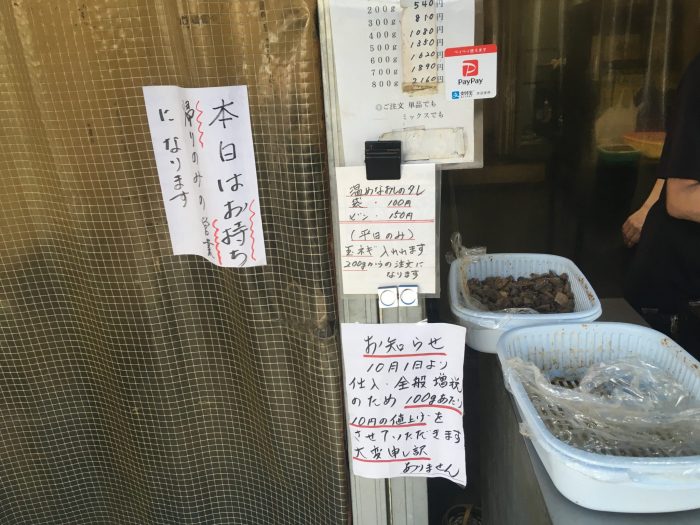 本日はお持ち
帰りのみの営業
になります
200g 540円
300g 810円
400g 1080円
500g 1350円
600g 1620円
700g 1890円
800g 2160円
◎ご注文 単品でも
ミックスでも
PayPay
温めなおしのタレ
袋・100円
ビン・150円
(平日のみ)
玉ネギ入れれます
200gからの注文に
なります
お知らせ
10月1日より
仕入・全般増税
のため 100gあたり
10円の値上げを
させていただきます
大変申し訳
ありません